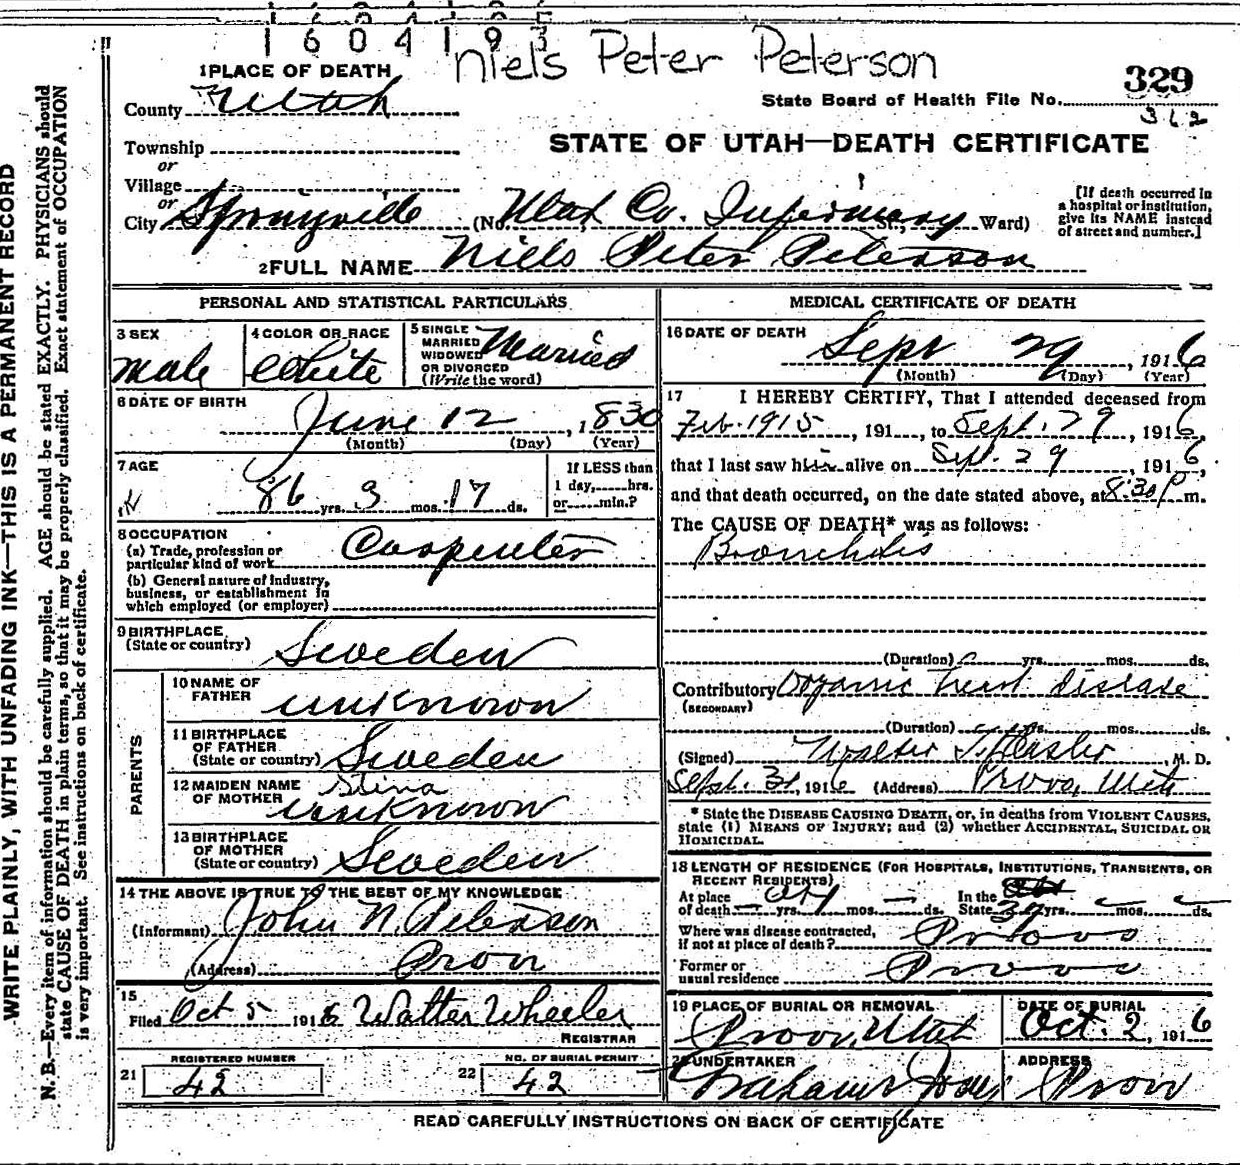 1604193
Niels Peter Peterson
1 PLACE OF DEATH
329
County Utah
State Board of Health File No.
312
Township
STATE OF UTAH—DEATH CERTIFICATE
or
Village
or
City Springville (No. Utah Co. Infirmary St., Ward)
[If death occurred in a hospital or institution, give its NAME instead of street and number.]
2 FULL NAME Niels Peter Peterson
PERSONAL AND STATISTICAL PARTICULARS
3 SEX
male
4 COLOR OR RACE
White
5 SINGLE
MARRIED
WIDOWED
OR DIVORCED
(Write the word)
Married
6 DATE OF BIRTH
June 12, 1830
(Month) (Day) (Year)
7 AGE
86 yrs. 3 mos. 17 ds.
If LESS than
1 day, hrs.
or min.?
8 OCCUPATION
(a) Trade, profession or
particular kind of work Carpenter
(b) General nature of industry,
business, or establishment in
which employed (or employer)
9 BIRTHPLACE
(State or country) Sweden
PARENTS
10 NAME OF
FATHER unknown
11 BIRTHPLACE
OF FATHER
(State or country) Sweden
12 MAIDEN NAME
OF MOTHER Stina
unknown
13 BIRTHPLACE
OF MOTHER
(State or country) Sweden
14 THE ABOVE IS TRUE TO THE BEST OF MY KNOWLEDGE
(Informant) John N. Peterson
(Address) Provo
15
Filed Oct 5 1916 Walter Wheeler
REGISTRAR
REGISTERED NUMBER
21 42
NO. OF BURIAL PERMIT
22 42
MEDICAL CERTIFICATE OF DEATH
16 DATE OF DEATH
Sept 29, 1916
(Month) (Day) (Year)
17 I HEREBY CERTIFY, That I attended deceased from
Feb. 1915, 191, to Sept. 29, 1916,
that I last saw him alive on Sept. 29, 1916,
and that death occurred, on the date stated above, at 8:30 P m.
The CAUSE OF DEATH* was as follows:
Bronchitis
(Duration) yrs. mos. ds.
Contributory Organic heart disease
(SECONDARY)
(Duration) yrs. mos. ds.
(Signed) Walter T. Hasler, M. D.
Sept. 30, 1916 (Address) Provo, Utah
* State the DISEASE CAUSING DEATH, or, in deaths from VIOLENT CAUSES,
state (1) MEANS OF INJURY; and (2) whether ACCIDENTAL, SUICIDAL OR
HOMICIDAL.
18 LENGTH OF RESIDENCE (FOR HOSPITALS, INSTITUTIONS, TRANSIENTS, OR
RECENT RESIDENTS)
At place
of death yrs. mos. ds.
In the
State yrs. mos. ds.
Where was disease contracted,
if not at place of death? Provo
Former or
usual residence Provo
19 PLACE OF BURIAL OR REMOVAL
Provo, Utah
DATE OF BURIAL
Oct. 2, 1916
20 UNDERTAKER
ADDRESS
Provo
READ CAREFULLY INSTRUCTIONS ON BACK OF CERTIFICATE
WRITE PLAINLY, WITH UNFADING INK—THIS IS A PERMANENT RECORD
N. B.—Every item of information should be carefully supplied. AGE should be stated EXACTLY. PHYSICIANS should
state CAUSE OF DEATH in plain terms, so that it may be properly classified. Exact statement of OCCUPATION
is very important. See instructions on back of certificate.